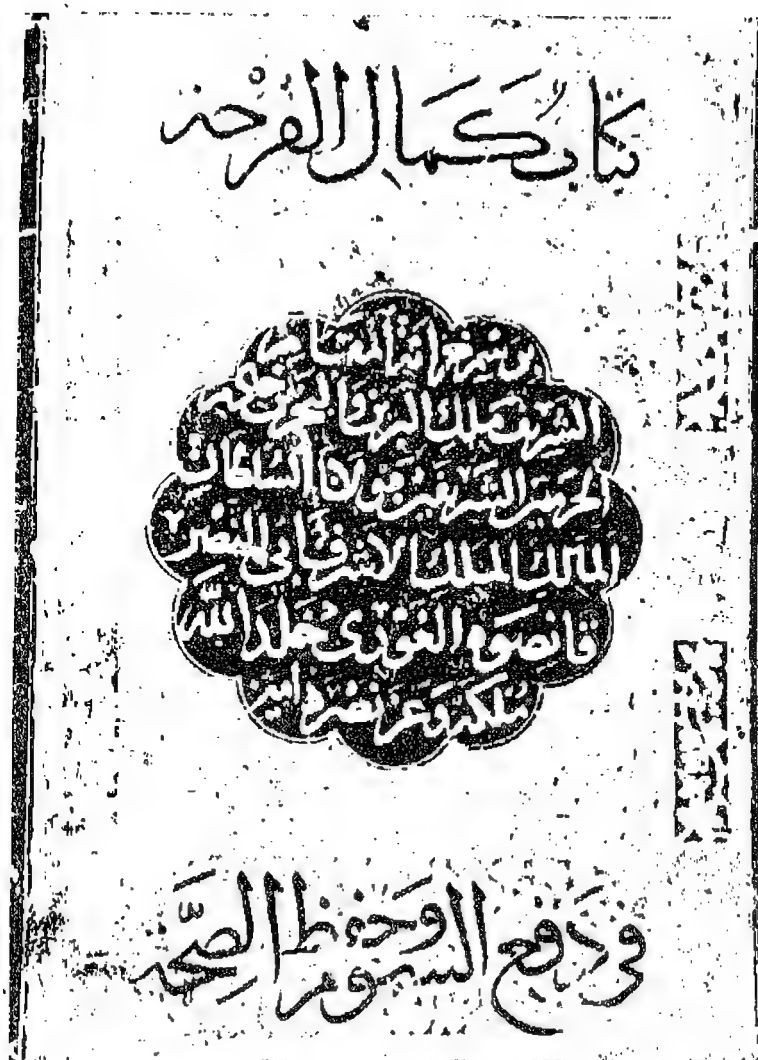 كتاب كمال الفرحة
برسم خزانة المقام
الشريف ملك البرين والبحرين خادم
الحرمين الشريفين مولانا السلطان
المالك الملك الاشرف ابى النصر
قانصوه الغورى خلد الله
ملكه وعز نصره امين
فى دفع السموم وحفظ الصحة